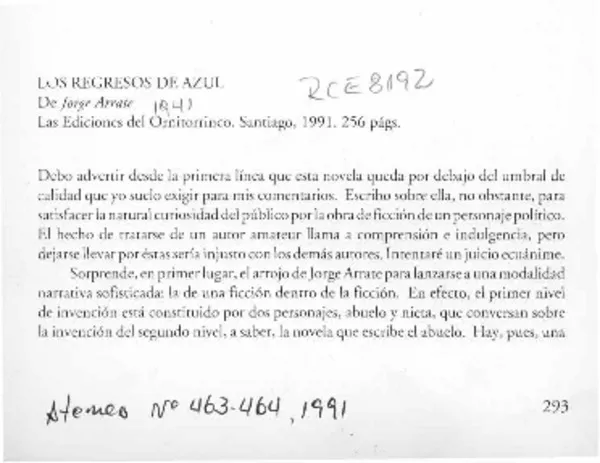 LOS REGRESOS DE AZUL
RCE8192
De Jorge Arrate 1941
Las Ediciones del Ornitorrinco. Santiago, 1991. 256 págs.
Debo advertir desde la primera línea que esta novela queda por debajo del umbral de
calidad que yo suelo exigir para mis comentarios. Escribo sobre ella, no obstante, para
satisfacer la natural curiosidad del público por la obra de ficción de un personaje político.
El hecho de tratarse de un autor amateur llama a comprensión e indulgencia, pero
dejarse llevar por éstas sería injusto con los demás autores. Intentaré un juicio ecuánime.
Sorprende, en primer lugar, el arrojo de Jorge Arrate para lanzarse a una modalidad
narrativa sofisticada: la de una ficción dentro de la ficción. En efecto, el primer nivel
de invención está constituido por dos personajes, abuelo y nieta, que conversan sobre
la invención del segundo nivel, a saber, la novela que escribe el abuelo. Hay, pues, una
Ateneo Nº 463-464, 1991
293